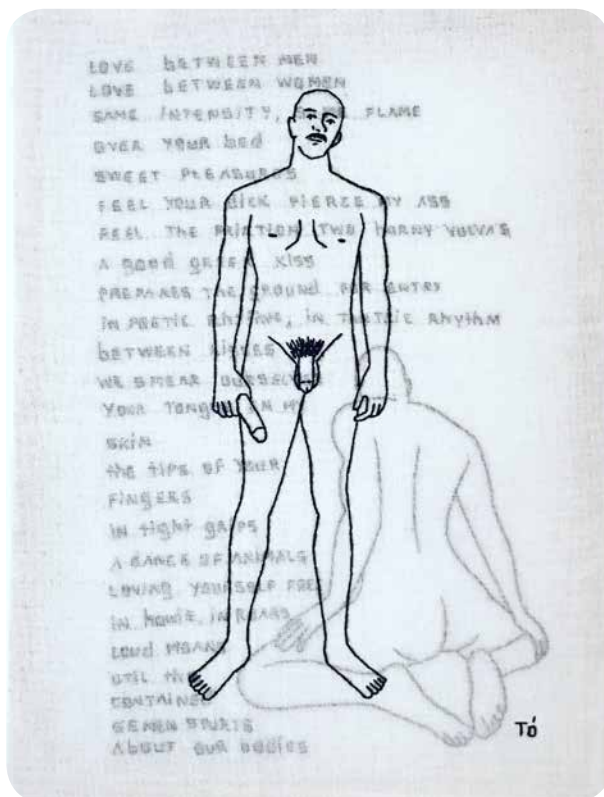 LOVE BETWEEN MEN
LOVE BETWEEN WOMEN
SAME INTENSITY, FLAME
OVER YOUR BED
SWEET PLEASURES
FEEL YOUR DICK PIERCE MY ASS
FEEL THE FRICTION TWO HORNY VULVA'S
A GOOD GREEK KISS
PREPARES THE GROUND FOR ENTRY
IN POETIC , IN TANTRIC RHYTHM
BETWEEN KISSES
WE SMEAR OURSELVES
YOUR TONGUE MY
SKIN
THE TIPS OF YOUR
FINGERS
IN TIGHT GRIPS
A DANCE OF ANIMALS
LOVING YOURSELF FREE
IN HOWLS, IN ROARS
LOUD MOANS
CONTAINED
SEMEN SPURTS
ABOUT OUR BODIES
TÓ